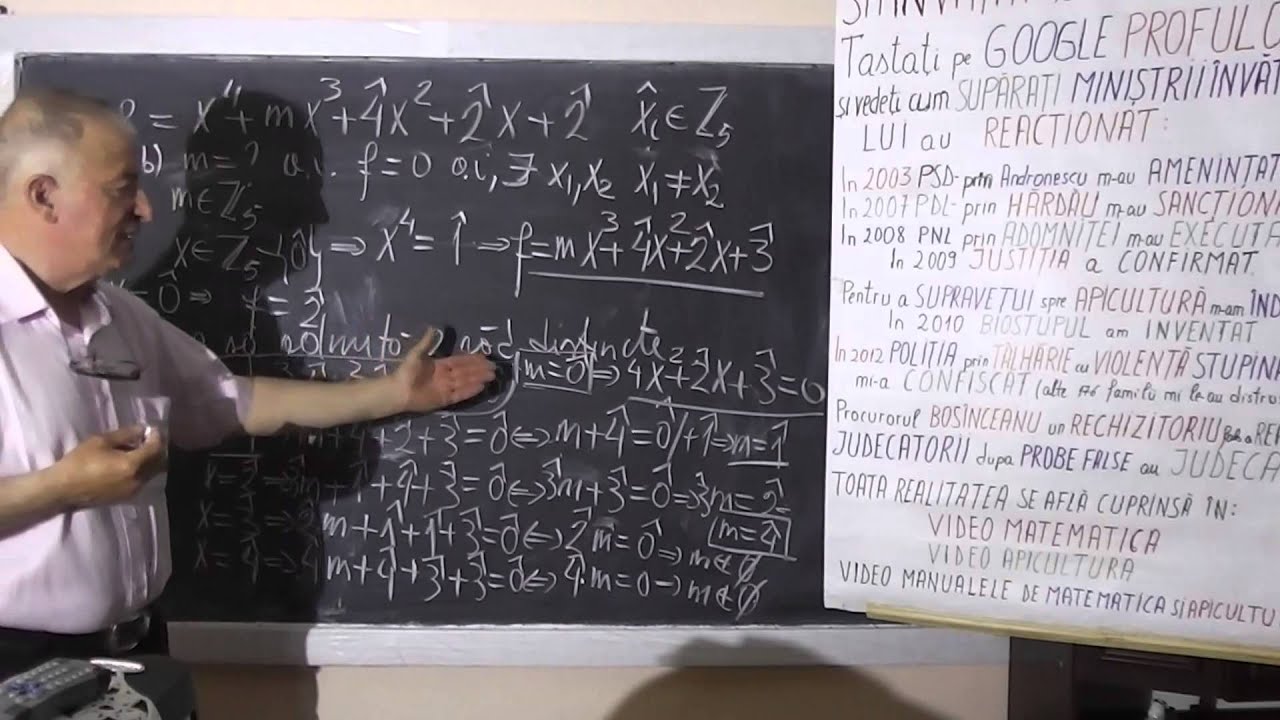 = x⁴ + mx³ + 4̂x² + 2̂x + 2̂ x̂ᵢ ∈ ℤ₅
b) m = ? a.î. f = 0 a.î, ∃ x₁, x₂ x₁ ≠ x₂
m ∈ ℤ₅
x ∈ ℤ₅ \ {0̂} ⇒ x⁴ = 1̂ ⇒ f = mx³ + 4̂x² + 2̂x + 3̂
= 0̂ ⇒ f = 2̂
distincte
m = 0̂ ⇒ 4x² + 2̂x + 3̂ = 0
+ 4̂ + 2̂ + 3̂ = 0̂ ⇔ m + 4̂ = 0̂ / + 1̂ ⇒ m = 1̂
m + 1̂ + 4̂ + 3̂ = 0̂ ⇔ 3̂m + 3̂ = 0̂ ⇒ 3̂m = 2̂
m = 4̂
x = 3̂ ⇒ 2̂m + 1̂ + 1̂ + 3̂ = 0̂ ⇔ 2̂m = 0̂ ⇒ m ∈ ∅
x = 4̂ ⇒ 4̂m + 4̂ + 3̂ + 3̂ = 0̂ ⇔ 4̂·m = 0 ⇒ m ∈ ∅
Tastați pe GOOGLE PROFULC
și vedeți cum SUPĂRAȚI MINIȘTRII ÎNVĂȚ
LUI au REACȚIONAT:
In 2003 PSD- prin Andronescu m-au AMENINȚAT
In 2007 PDL- prin HĂRDĂU m-au SANCȚION
In 2008 PNL prin ADOMNIȚEI m-au EXECUTA
In 2009 JUSTIȚIA a CONFIRMAT.
Pentru a SUPRAVEȚUI spre APICULTURĂ m-am ÎND
In 2010 BIOSTUPUL am INVENTAT
In 2012 POLIȚIA prin TÂLHĂRIE cu VIOLENȚĂ STUPINA
mi-a CONFISCAT (alte 176 familii mi le-au distrus
Procurorul BOSÎNCEANU un RECHIZITORIU
JUDECATORII dupa PROBE FALSE au JUDECA
TOATA REALITATEA SE AFLĂ CUPRINSĂ ÎN:
VIDEO MATEMATICA
VIDEO APICULTURA
VIDEO MANUALELE DE MATEMATICA SI APICULTU